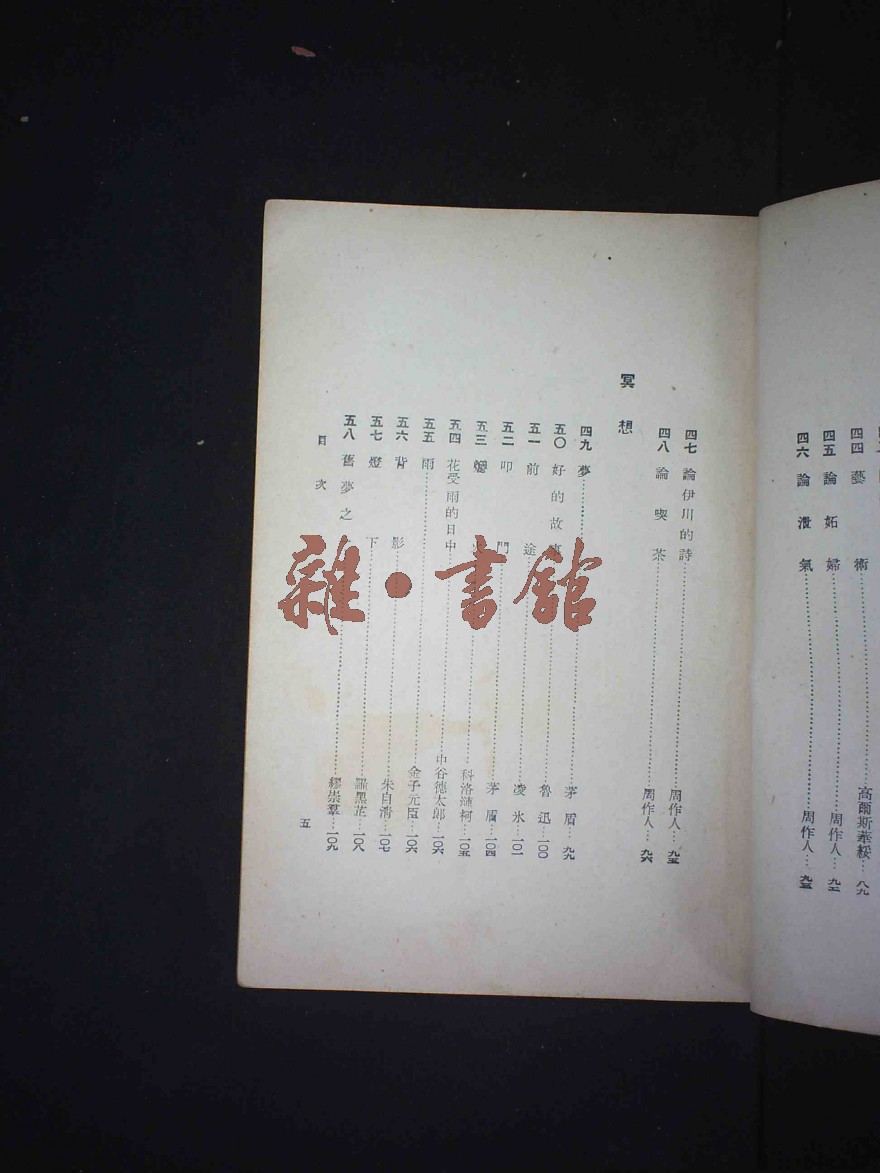 四四 藝術 高爾斯華綏 八九
四五 論妬婦 周作人 九二
四六 論泄氣 周作人 九三
四七 論伊川的詩 周作人 九五
四八 論喫茶 周作人 九六
冥想
四九 夢 茅盾 九九
五〇 好的故事 魯迅 一〇〇
五一 前途 凌氷 一〇一
五二 叩門 茅盾 一〇四
五三 科洛漣柯 一〇五
五四 花受雨的日中 中谷德太郎 一〇六
五五 雨 金子元臣 一〇六
五六 背影 朱自清 一〇七
五七 燈下 羅黑芷 一〇八
五八 舊夢之 繆崇羣 一〇九
目次
五
雜·書館